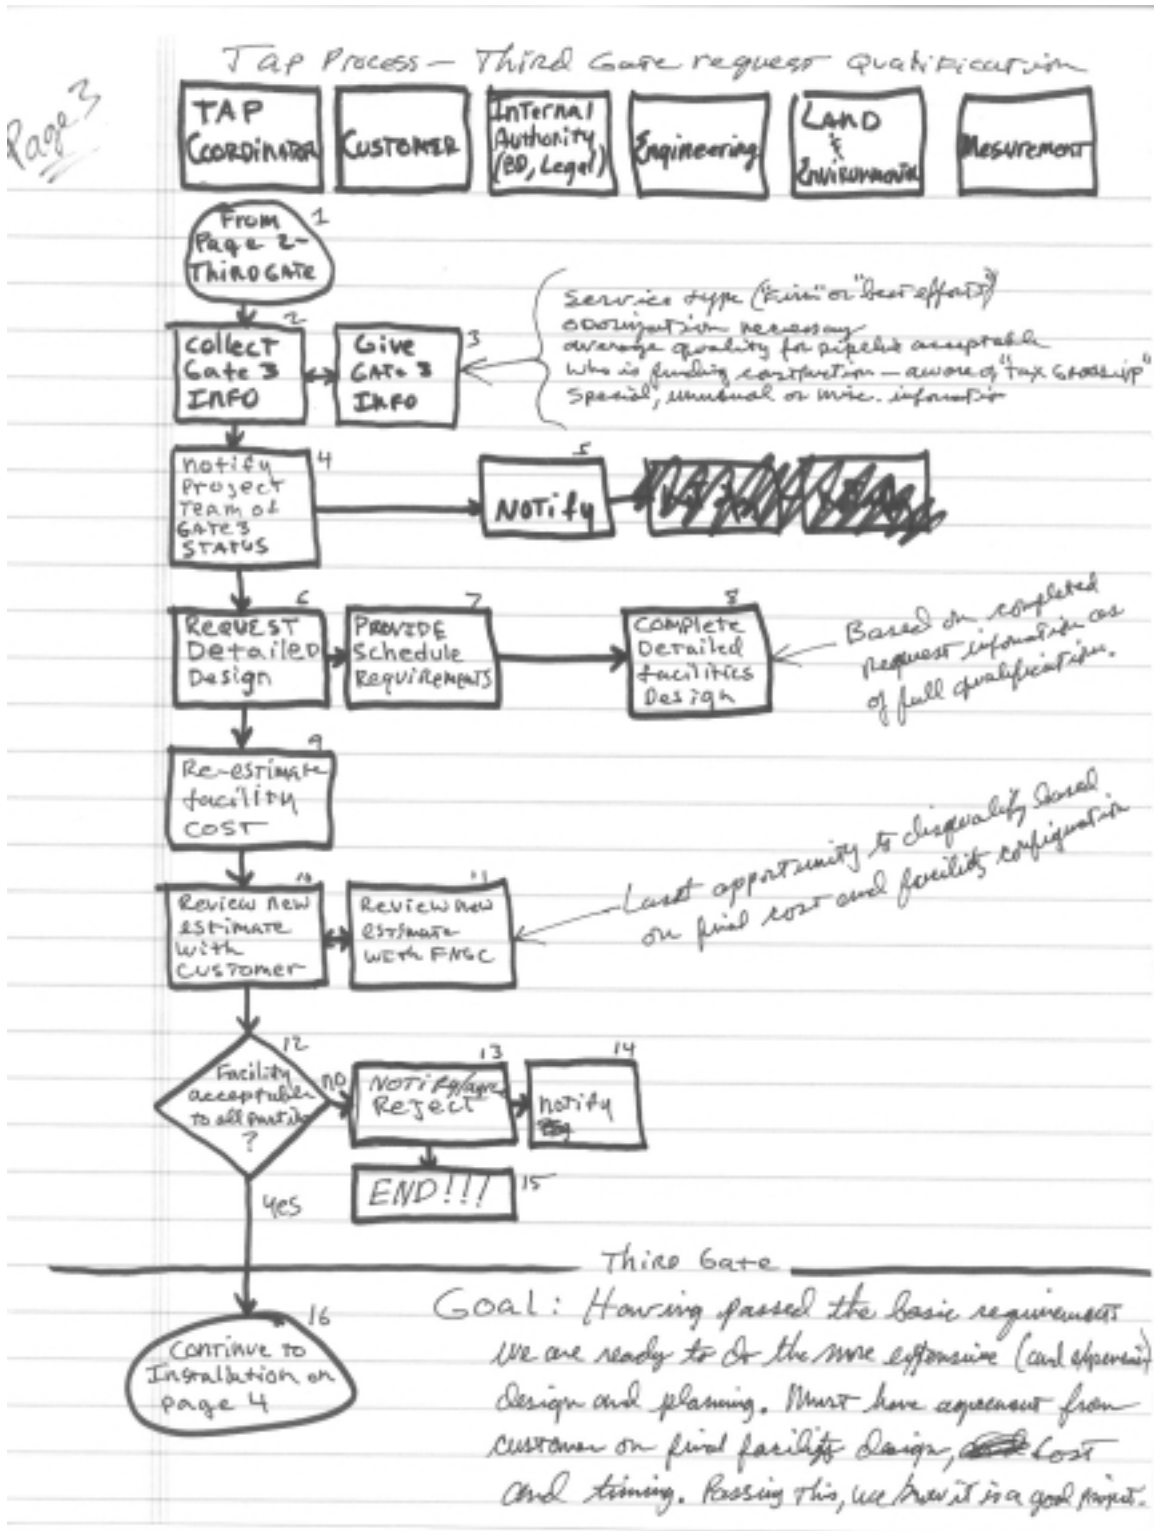 Page 3
Tap Process — Third Gate request Qualification
TAP
COORDINATOR
CUSTOMER
Internal
Authority
(BD, Legal)
Engineering
LAND
&
Environmental
Mesurement
From
Page 2-
Third GATE
1
Collect
Gate 3
INFO
2
Give
GATE 3
INFO
3
Service type ("Firm" or "best efforts")
odorization necessary
average quality for pipeline acceptable
Who is funding construction — aware of "tax Gross-up"
Special, unusual or misc. information
notify
Project
Team of
GATE 3
STATUS
4
NOTify
5
REQUEST
Detailed
Design
6
PROVIDE
Schedule
Requirements
7
Complete
Detailed
facilities
Design
8
Based on completed
request information as
of full qualification.
Re-estimate
facility
COST
9
Review new
estimate
with
Customer
10
Review new
estimate
with FNGC
11
Last opportunity to disqualify based
on final cost and facility configuration
Facility
acceptable
to all parties
?
12
no
NOTify/agree
Reject
13
notify
14
END!!!
15
Yes
Third Gate
Continue to
Installation on
page 4
16
Goal: Having passed the basic requirements
we are ready to do the more extensive (and expensive)
design and planning. Must have agreement from
customer on final facility design, cost
and timing. Passing this, we know it is a good project.